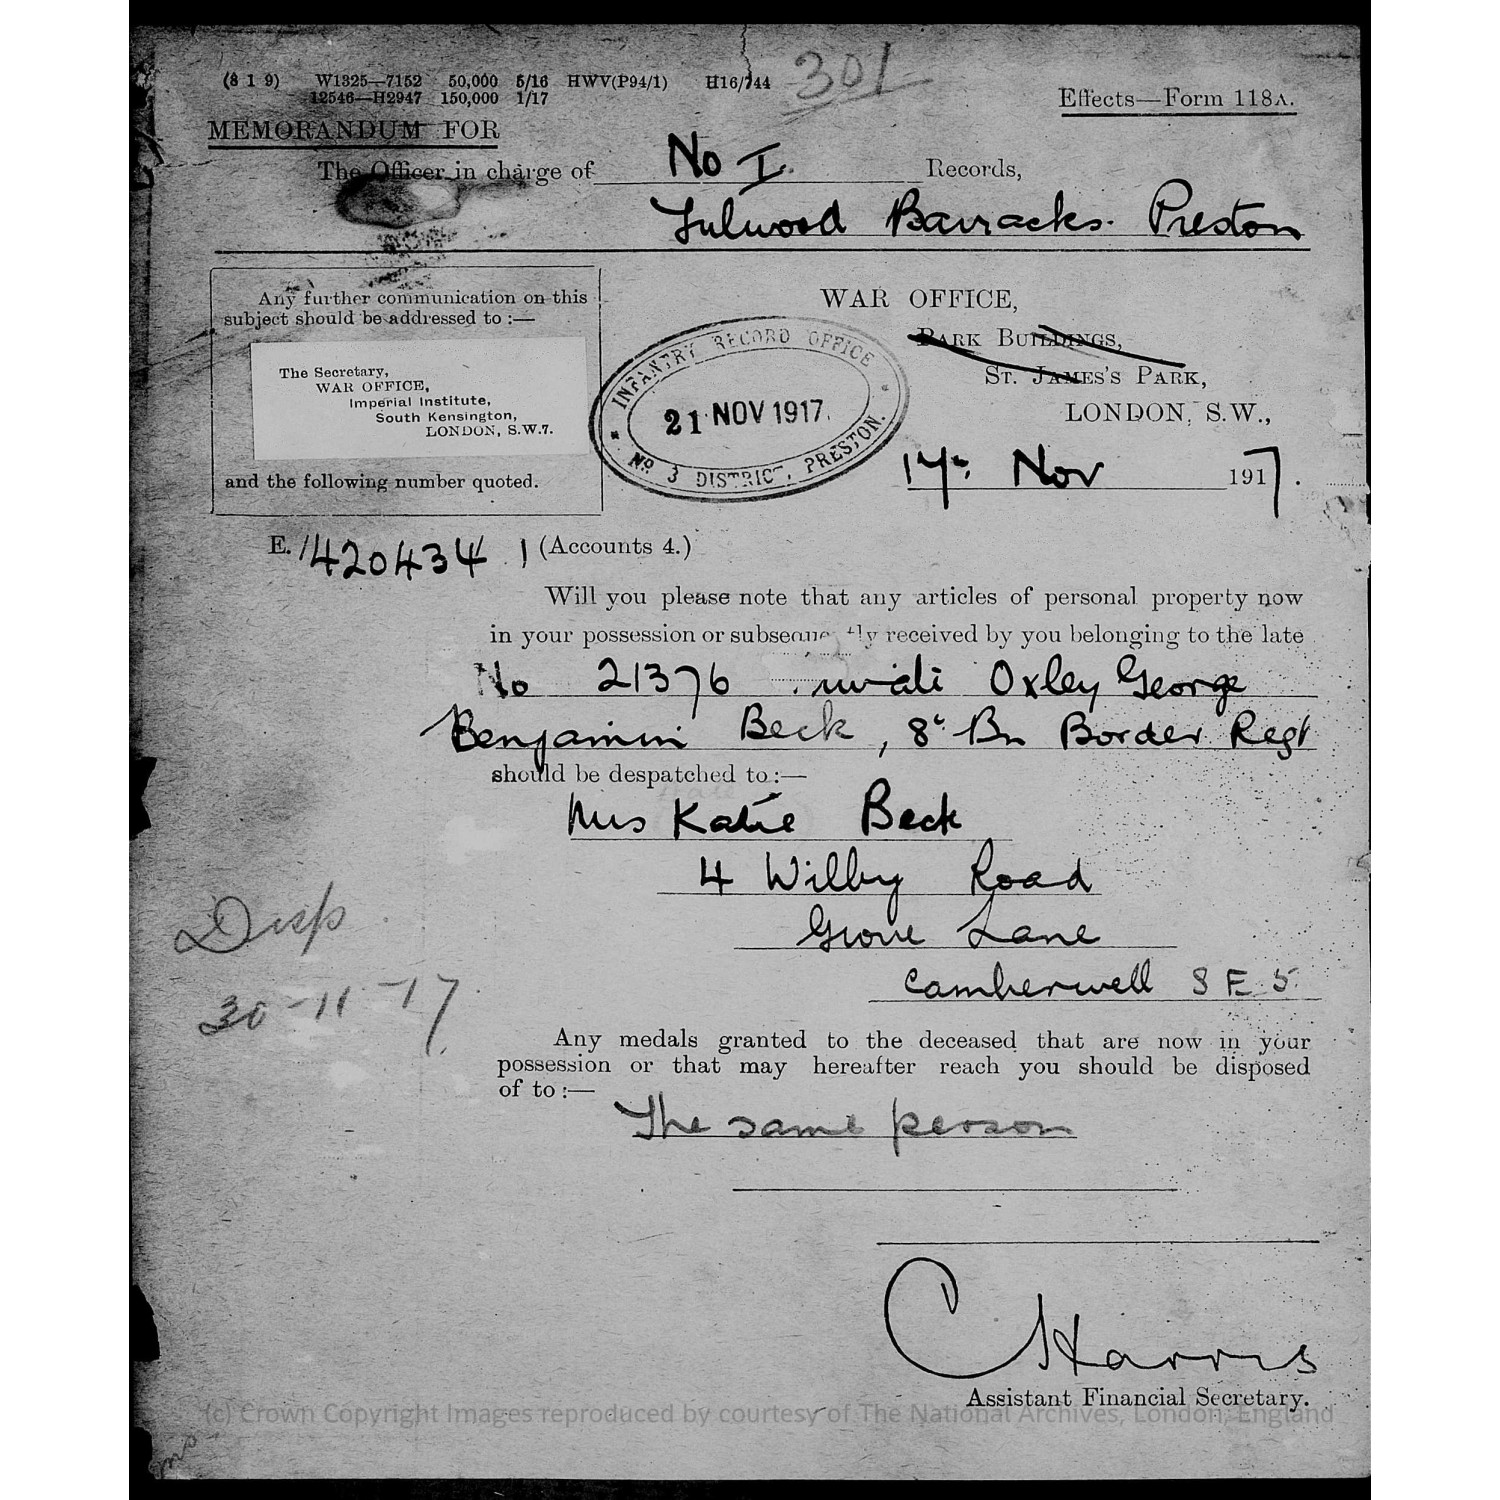 (8 1 9) W1325—7152 50,000 5/16 HWV(P94/1) H16/744
12546—H2947 150,000 1/17
301
Effects—Form 118A.
MEMORANDUM FOR
The Officer in charge of No I Records,
Fulwood Barracks. Preston
Any further communication on this
subject should be addressed to :—
The Secretary,
WAR OFFICE,
Imperial Institute,
South Kensington,
LONDON, S.W.7.
and the following number quoted.
INFANTRY RECORD OFFICE
21 NOV 1917.
No 3 DISTRICT, PRESTON.
WAR OFFICE,
PARK BUILDINGS,
ST. JAMES'S PARK,
LONDON, S.W.,
17th Nov 1917.
E./420434.1 (Accounts 4.)
Will you please note that any articles of personal property now
in your possession or subsequently received by you belonging to the late
No 21376 Oxley George
Benjamin Beck, 8th Bn Border Regt
should be despatched to :—
Mrs Katie Beck
4 Wilby Road
Grove Lane
Camberwell S E. 5.
Disp.
30-11-17.
Any medals granted to the deceased that are now in your
possession or that may hereafter reach you should be disposed
of to :—
The same person
C Harris
Assistant Financial Secretary.
(c) Crown Copyright Images reproduced by courtesy of The National Archives, London, England